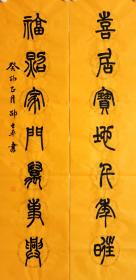 喜居寶地千年旺
福照家門萬事興
癸卯 月 書